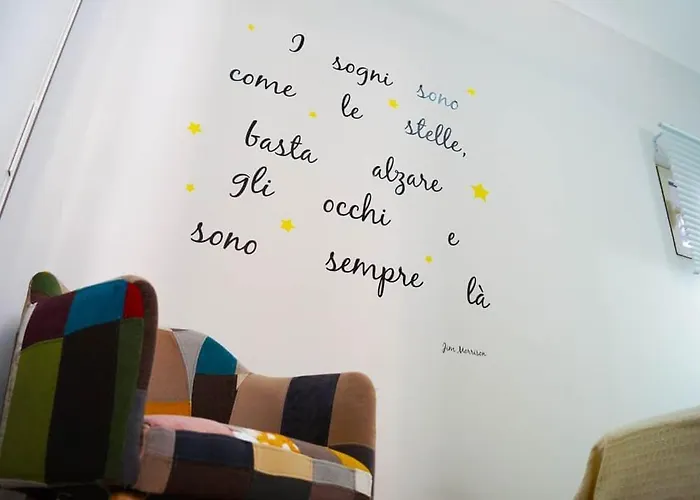 I sogni sono
come le stelle,
basta alzare
gli occhi e
sono sempre là
Jim Morrison